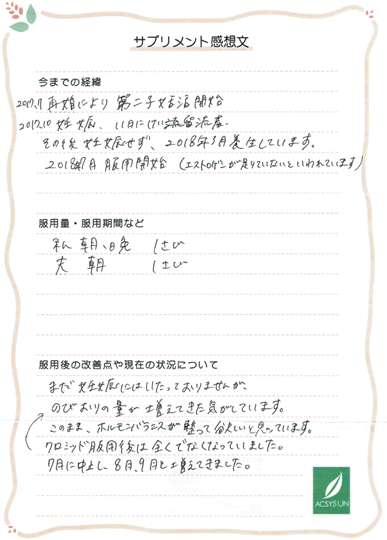 サプリメント感想文
今までの経緯
2017.7 再婚により 第二子妊活開始
2017.10 妊娠、11月にけい流産。
その後 妊娠せず、2018年3月
2018年7月 服用開始 (エストロゲンが足りていないといわれています)
服用量・服用期間など
私 朝、晩 1さじ
夫 朝 1さじ
服用後の改善点や現在の状況について
まだ妊娠にはいたっておりませんが、
のびおりの量が増えてきた気がしています。
このまま、ホルモンバランスが整って欲しいと思っています。
クロミッド服用後は全くでなくなっていました。
7月に中止し、8月、9月と増えてきました。
ACSYSUN